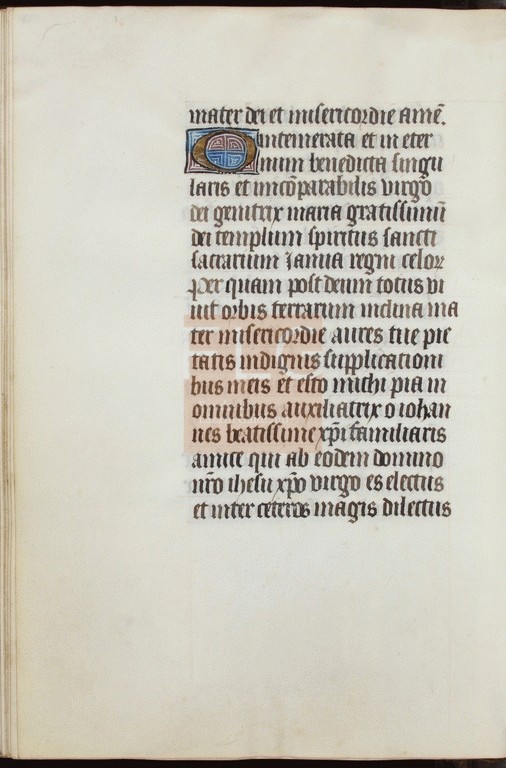 mater dei et misericordie amē.
O intemerata et in eter
num benedicta singu
laris et incōparabilis virgo
dei genitrix maria gratissimū
dei templum spiritus sancti
sacrarium Ianua regni celor
per quam post deum totus vi
uit orbis terrarum inclina ma
ter misericordie aures tue pie
tatis indignis supplicationi
bus meis et esto michi pia in
omnibus auxiliatrix o iohan
nes beatissime xp̄i familiaris
amice qui ab eodem domino
nr̄o ihesu xp̄o virgo es electus
et inter ceteros magis dilectus